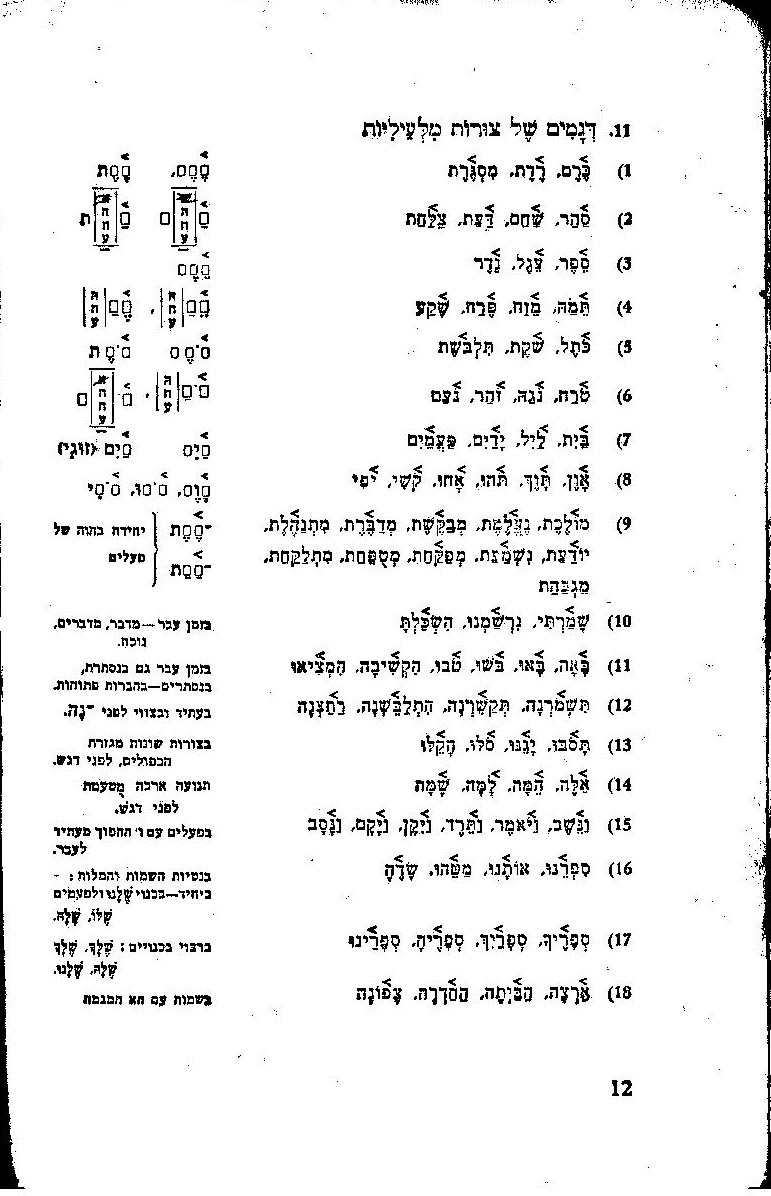 11. דְּגָמִים שֶׁל צוּרוֹת מִלְּעֵילִיּוֹת
1) כֶּרֶם, רֶדֶת, מִסְגֶּרֶת
2) סַהַר, שַׁחַם, דַּעַת, צַלַּחַת
3) סֵפֶר, עֵגֶל, נֵדֶר
4) תֵּמַהּ, מֵזַח, פֶּרַח, שֶׁקַע
5) כֹּתֶל, שֹׁקֶת, תִּלְבֹּשֶׁת
6) טֹרַח, נֹגַהּ, זֹהַר, נֹעַם
7) בַּיִת, לַיִל, יָדַיִם, פַּעֲמַיִם
מַיִם (זוגי)
8) אָוֶן, תָּוֶךְ, תֹּהוּ, אָחוּ, קֹשִׁי, יֹפִי
9) מוֹלֶכֶת, נֶאֱלֶמֶת, מְבַקֶּשֶׁת, מְדַבֶּרֶת, מִתְנַהֶלֶת,
יוֹדַעַת, נִשְׁמַעַת, מְפַקַּחַת, מְטַפַּחַת, מִתְלַקַּחַת,
מַגְבַּהַת
יחידה בהוה של
פעלים
10) שָׁמַרְתִּי, נִרְשַׁמְנוּ, הִשְׂכַּלְתָּ
בזמן עבר—מדבר, מדברים,
נוכח.
11) בָּאָה, בָּאוּ, בֹּשׁוּ, טֹבוּ, הִקְשִׁיבָה, הִמְצִיאוּ
בזמן עבר גם בנסתרת,
בנסתרים—בהברות פתוחות.
12) תִּשְׁמֹרְנָה, תְּקַשֵּׁרְנָה, הִתְלַבֵּשְׁנָה, רְחַצְנָה
בעתיד ובצווי לפני ־נָה.
13) תָּסֹבּוּ, יָגֵנּוּ, סֹלּוּ, הֵקַלּוּ
בצורות שונות מגזרת
הכפולים, לפני דגש.
14) אֵלֶּה, הֵמָּה, לָמָּה, שָׁמָּה
תנועה ארכה מֻטעמת
לפני דגש.
15) וַנֵּשֶׁב, וַיֹּאמֶר, וַתֵּרֶד, וַיִּקֶן, וַיָּקָם, וַנָּסָב
בפעלים עם ו' ההפוך מעתיד
לעבר.
16) סִפְרֵנוּ, אוֹתָנוּ, מַשֶּׁהוּ, שָׂדֶהָ
בנטיות השמות והמלות: –
ביחיד—בכנוי שֶׁלָּנוּ ולפעמים
שֶׁלּוֹ, שֶׁלָּהּ.
17) סְפָרֶיךָ, סְפָרַיִךְ, סְפָרֶיהָ, סְפָרֵינוּ
ברבוי בכנויים: שֶׁלְּךָ, שֶׁלָּךְ
שֶׁלָּהּ, שֶׁלָּנוּ.
18) אַרְצָה, הַבַּיְתָה, הַחַדְרָה, צָפוֹנָה
בשמות עם הא המגמה
12